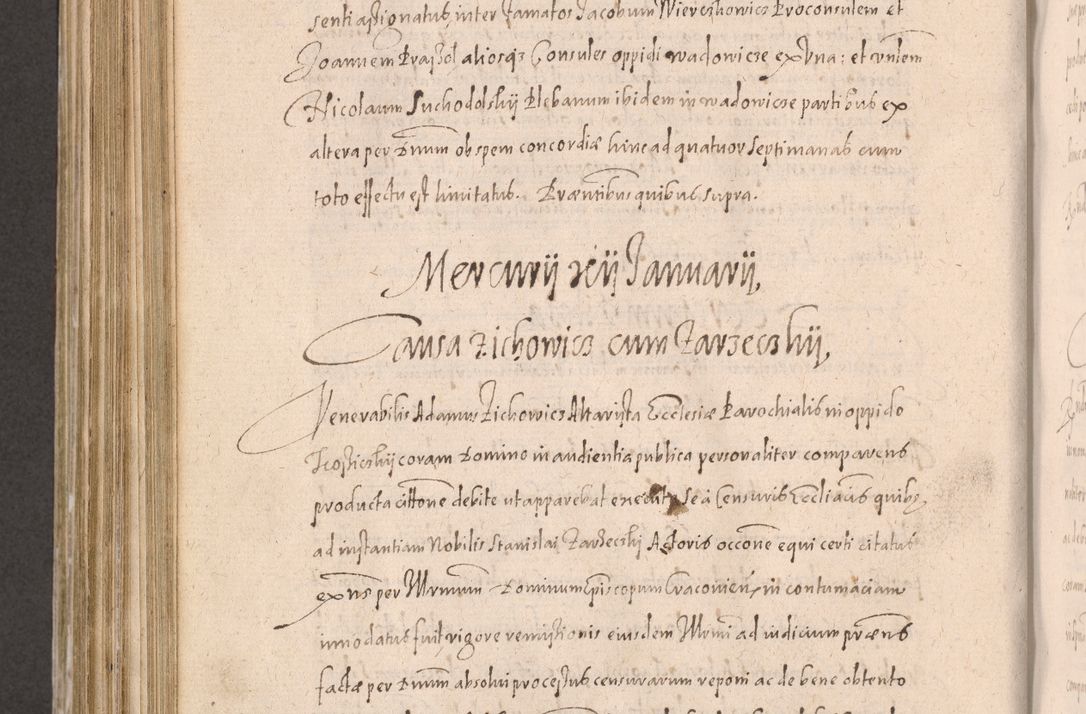 senti assignatus, inter famatos Jacobum Wierczkowicz Proconsulem et
Joannem Krassol aliosqz Consules oppidi wadowicze ex vna: et vnlem
Nicolaum Suchodolskij Plebanum ibidem in wadowicze partibus ex
altera per Dnum ob spem concordiæ hinc ad quatuor septimanas cum
toto effectu est limitatus. Præntibus quibus supra.
Mercurij xij Januarij,
Causa Zichowicz cum Zarzeczkij,
Venerabilis Adamus Zichowicz Altarista Ecclesiæ Parochialis in oppido
coram Domino in audientia publica personaliter comparens
producta cittone debite ut apparebat se à Censuris Eccliacis quibz,
ad instantiam Nobilis Stanislai Zarzeczkij Actoris occone equi certi citatus
exns per Mrmum Dominum Episcopum Cracovien, in contumaciam
innodatus fuit, vigore remissionis eiusdem Mrmi ad iudicium præns
factæ per Dnum absolui processus censurarum reponi ac de bene obtento